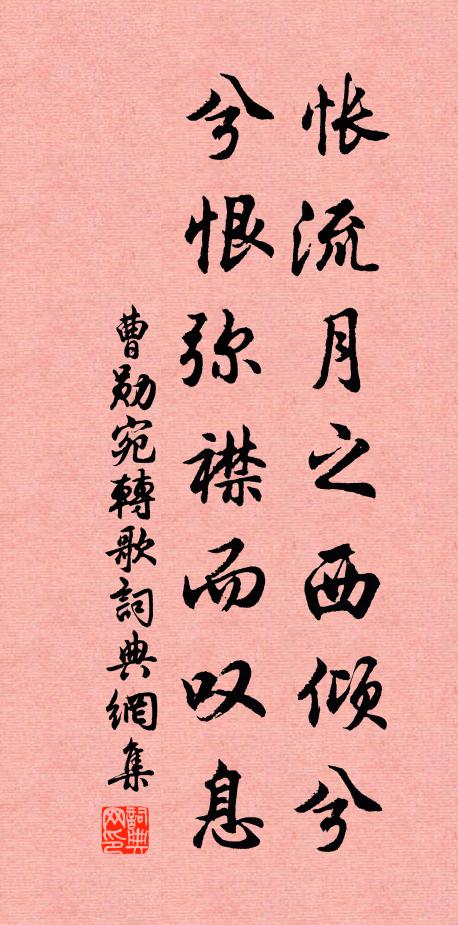 怅流月之西倾兮
兮恨弥襟而叹息
曹勋宛轉歌詞典網集
詞典网印